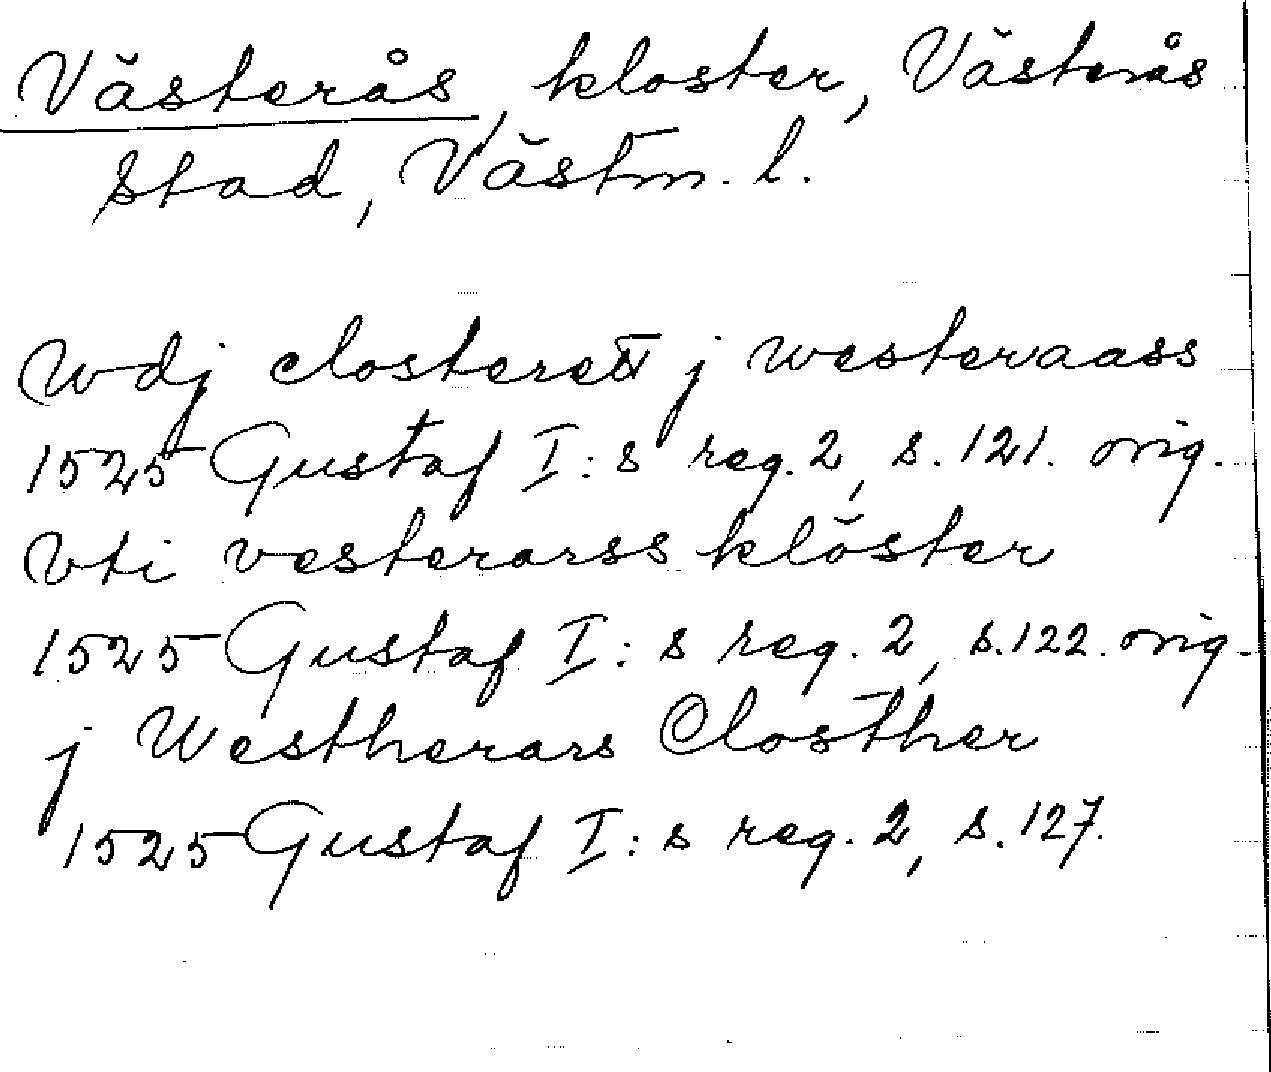 Västerås, kloster, Västerås
stad, Västm. l.
Wdj closteret j westeraass
1525 Gustaf I:s reg. 2, s. 121. orig.
Vti vesterarss klöster
1525 Gustaf I:s reg. 2, s. 122. orig.
j Westherars Closther
1525 Gustaf I:s reg. 2, s. 127.